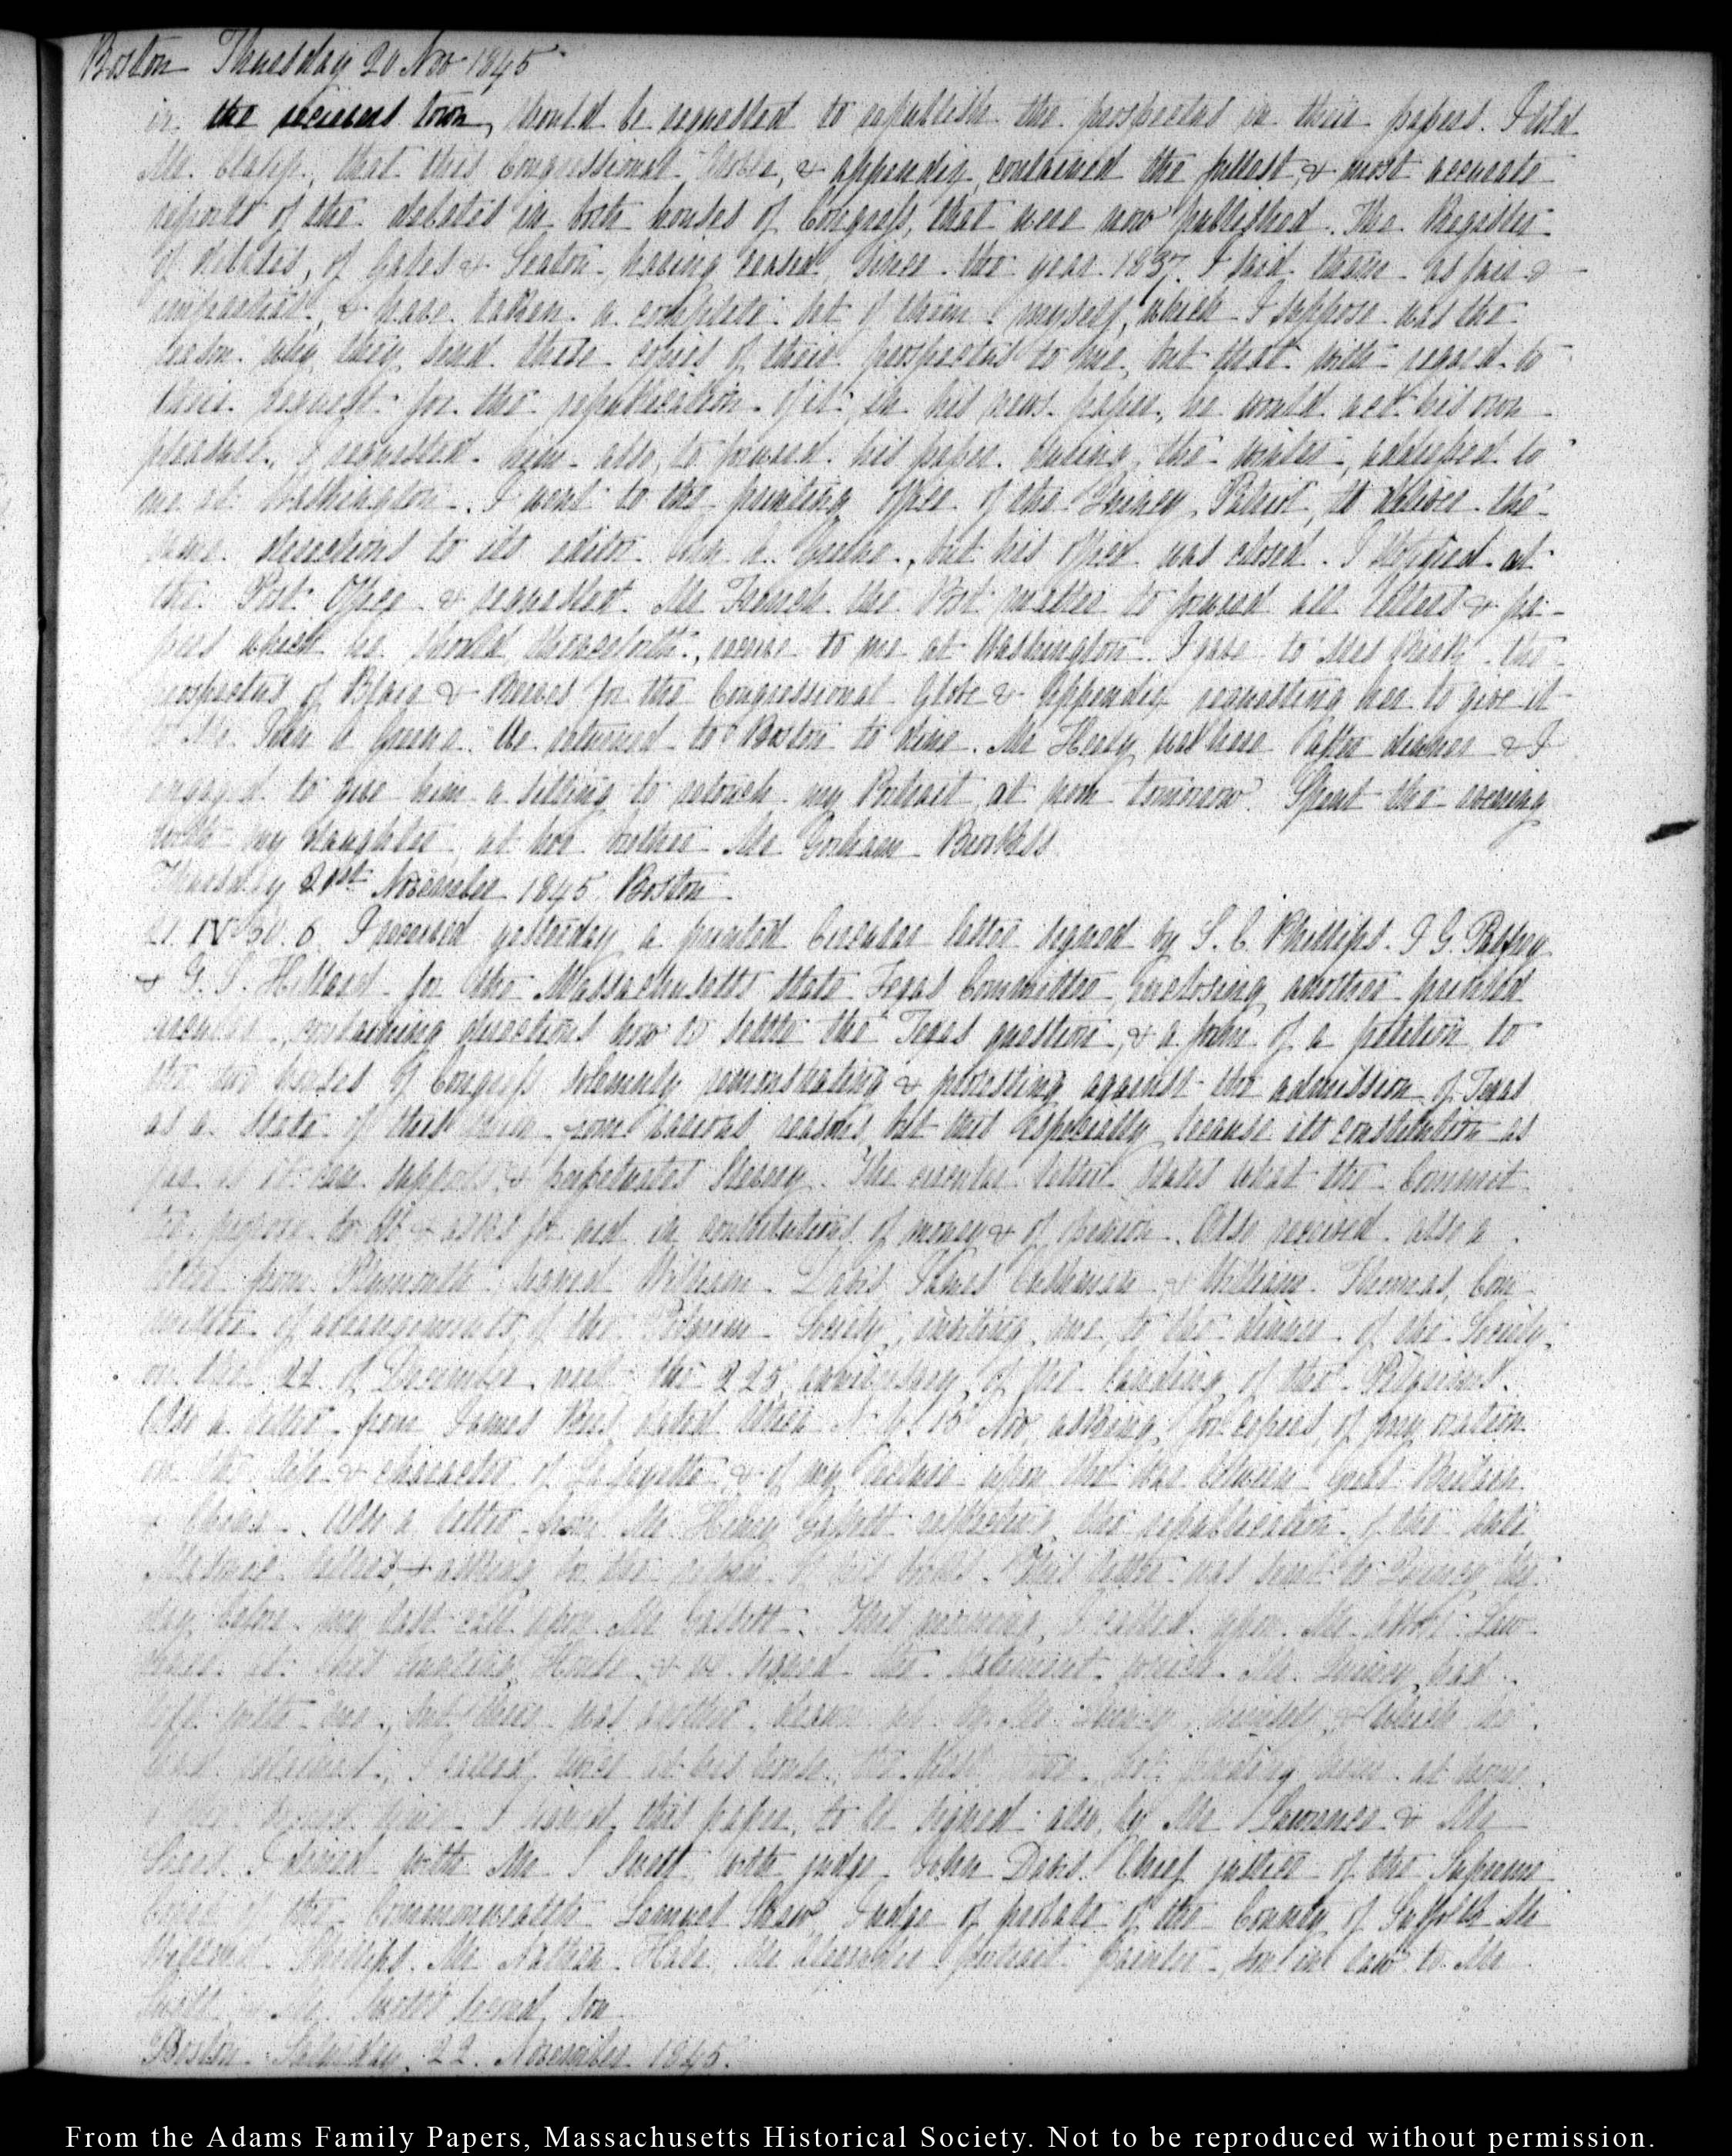 Boston Thursday 20 Nov 1845
in the several town, should be requested to republish the prospectus in their papers. I told
Mr. Clapp, that this Congressional Globe, & appendix, contained the fullest, & most accurate
reports of the debates in both houses of Congress, that were now published. The Register
of debates, of Gales & Seaton having ceased since the year 1837. I said them as fair &
impartial, & have taken a complete set of them myself, which I suppose was the
reason why they send these copies of their prospectus to me, but that with regard to
their request for the republication of it in his news paper, he would act his own
pleasure. I requested him also, to forward his paper during the winter, addressed to
me at Washington. I went to the printing office of the Quincy Patriot, to deliver the
same directions to its editor John A. Greene, but his office was closed. I stopped at
the Post Office & requested Mr French the Post master to forward all letters & pa-
pers which he should thenceforth, receive to me at Washington. I gave to the
prospectus of Blair & Reeves for the Congressional Globe & Appendix requesting her to give it
to Mr. John A Greene. We returned to Boston to dine. Mr Healy was here after dinner & I
engaged to give him a sitting to retouch my Portrait, at noon tomorrow. Spent the evening
with my daughter, at her brother Mr Gorham Brooks's
Thursday 21st November 1845 Boston
21. IV. 30. 6. I received yesterday a printed Circular letter signed by S. C. Phillips. I G. Palfrey
& G. S. Hillard for the Massachusetts State Texas Committee, enclosing another printed
circular, containing directions how to settle the Texas question, & a form of a petition, to
the two houses of Congress solemnly remonstrating & protesting against the admission of Texas
as a State of this Union various reasons, but this especially because its constitution as
far as it can supports, & perpetuates Slavery. The circular letter states what the Commit
tee propose to do & asks for aid in contributions of money & of opinion. Also received also a
letter from Plymouth, signed William Davis James & William Thomas, Com
mittee of arrangements of the Pilgrim Society, inviting me, to the dinner of the Society,
on the 22 of December next the 225 anniversary, of the landing of the Pilgrims.
Also a letter from James Rees, dated Utica N. Y. 15 Nov, asking, for copies, of my oration
on the life & character of La Fayette & of my lecture upon the war between Great Britain
& China. Also a letter from Mr Henry Gassett respecting the republication of the
letters, & asking for the return of his books. This letter was sent to Quincy the
day before my last call upon Mr Gassett. This morning, I called upon Mr Abbott Law-
rence at his Counting House, & we signed the statement which Mr. Quincy had
left with me, but there was another drawn up by Mr Quincy himself, & which he
had retained. I called twice at his house, the first time not finding him at home,
the second time I signed this paper, to be signed also, by Mr Lawrence & Mr
I dined with Mr S Swett, with judge John Davis. Chief justice of the Supreme
Court of the Commonwealth Lemuel Shaw, Judge of probate of the County of Suffolk Mr
Willard Phillips. Mr Nathan Hale, Mr Alexander portrait painter, son in law to Mr
Swett, & Mr. Swett's second son
Boston. Saturday, 22. November 1845.
From the Adams Family Papers, Massachusetts Historical Society. Not to be reproduced without permission.